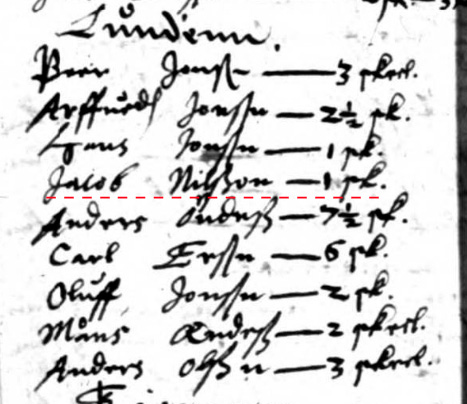 Lundenn.
Peer Jonss — 3 skel.
Arffuedh Jonssn — 2½ sk.
Hans Jonssn — 1 sk.
Jacob Nilsson — 1 sk.
Anders — 7½ sk.
Carl Erssn — 6 sk.
Oluff Jonssn — 2 sk.
Måns Andess — 2 skel.
Anders Olss n — 3 skel.